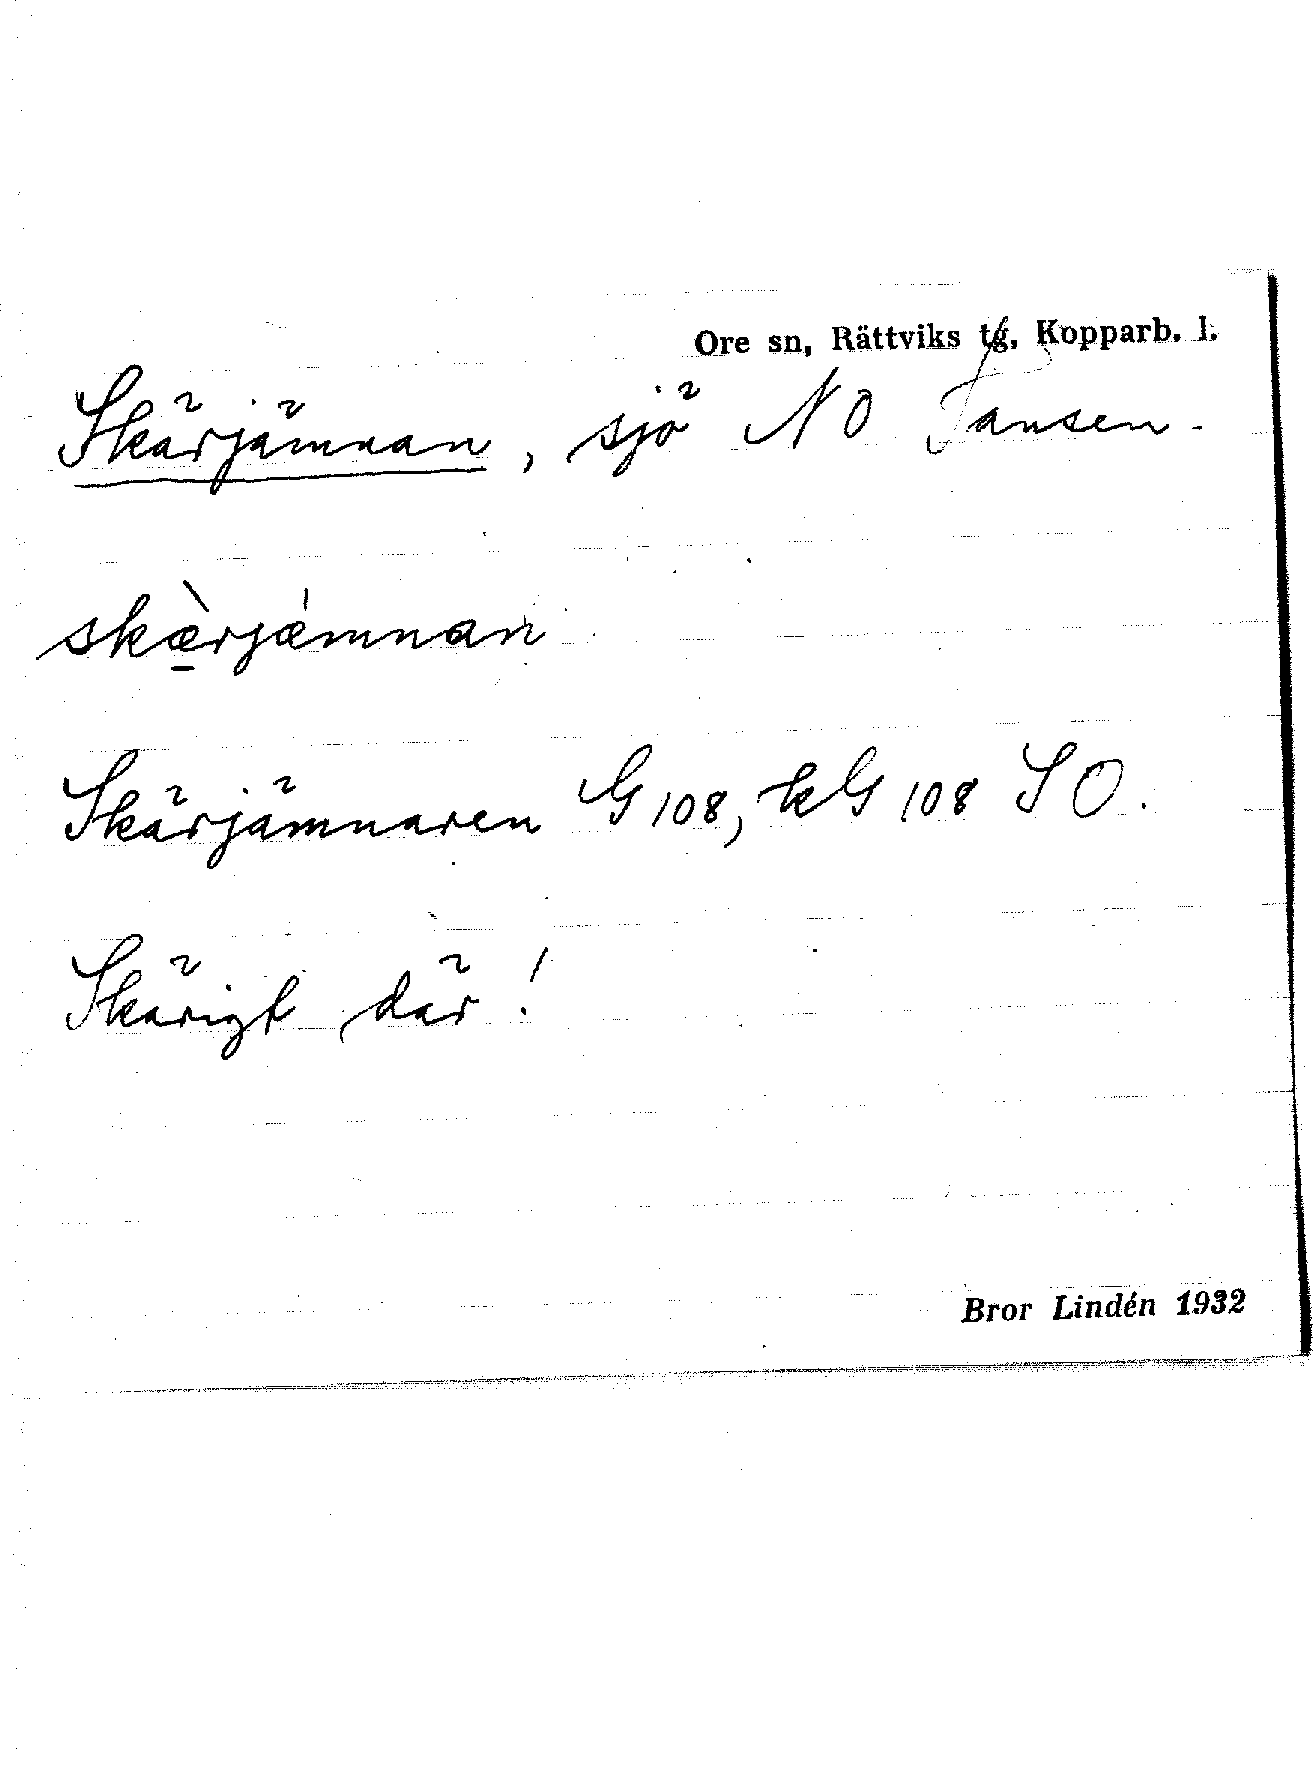 Ore sn, Rättviks tg, Kopparb. l.
Skärjämnan, sjö NO Tansen.
skæ̱̀rjǽmnan
Skärjämnaren G 108, kG 108 SO.
Skärigt där!
Bror Lindén 1932